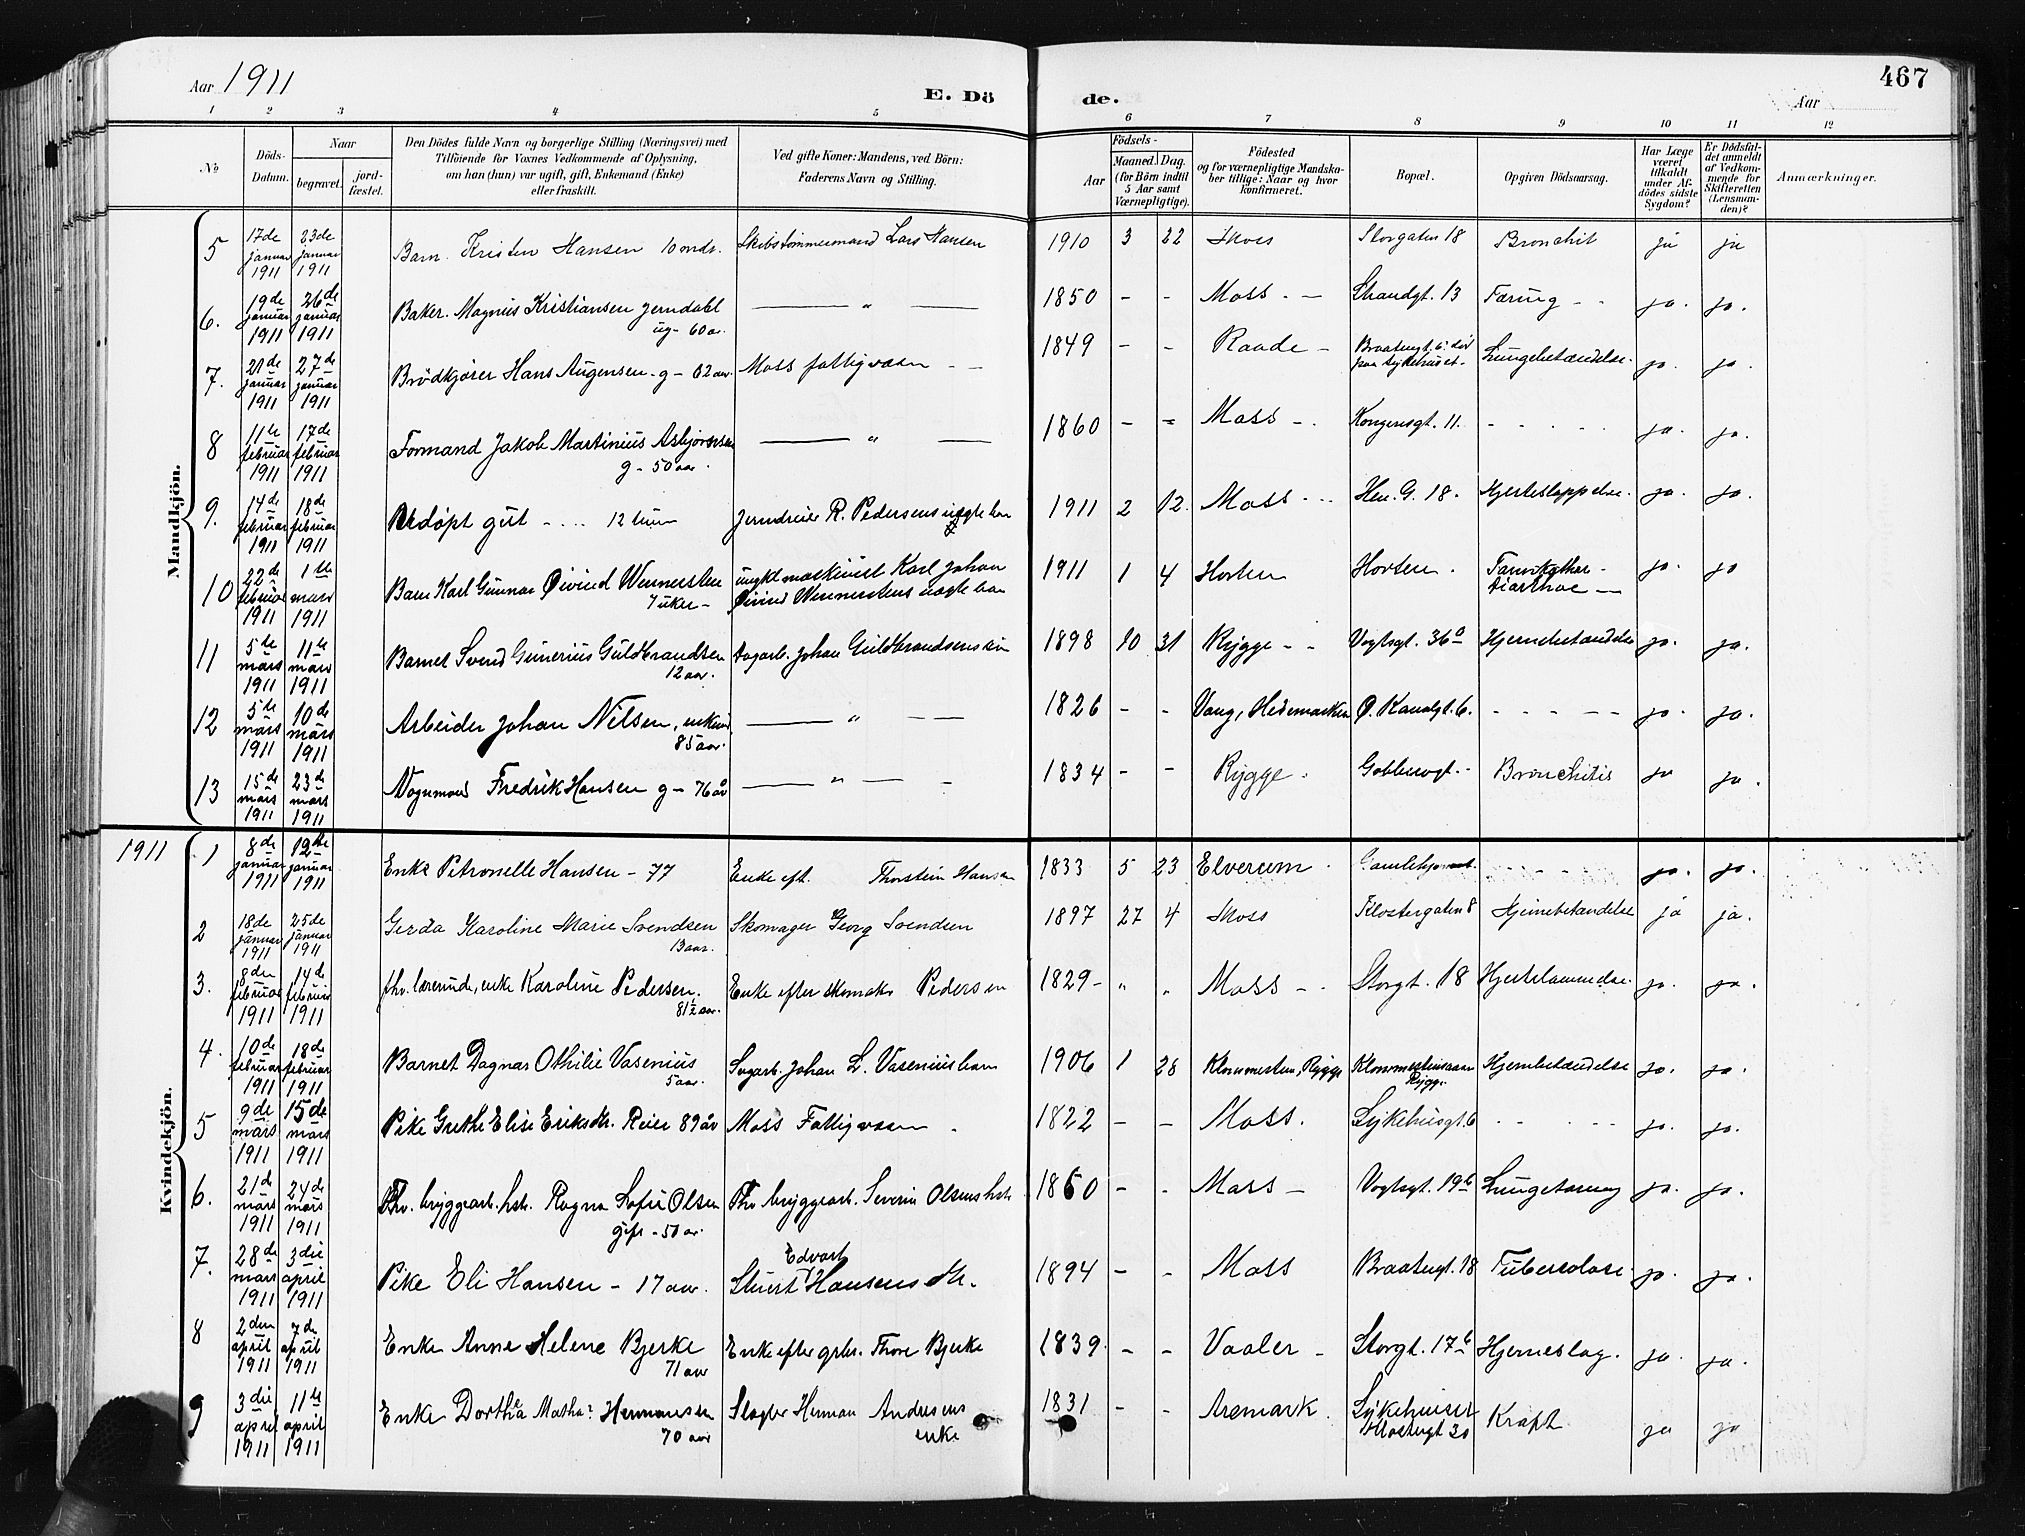 467
Aar 1911
E. Dö de.
Aar
1 2 3 4 5 6 7 8 9 10 11 12
No
Döds-Datum.
Naar
begravet.
jord-fæstet.
Den Dödes fulde Navn og borgerlige Stilling (Næringsvei) med
Tilföiende for Voxnes Vedkommende af Oplysning,
om han (hun) var ugift, gift, Enkemand (Enke)
eller fraskilt.
Ved gifte Koner: Mandens, ved Börn:
Faderens Navn og Stilling.
Födsels-
Aar
Maaned. Dag.
(for Börn indtil
5 Aar samt
Værnepligtige).
Födested
og for værnepligtige Mandska-
ber tillige: Naar og hvor
konfirmeret.
Bopæl.
Opgiven Dödsaarsag.
Har Læge
været
tilkaldt
under Af-
dödes sidste
Sygdom?
Er Dödsfal-
det anmeldt
af Vedkom-
mende for
Skifteretten
(Lensman-
den)?
Anmærkninger.
Mandkjön.
5 17de januar 1911 23de januar 1911 Barn Kristen Hansen 10 mdr. Skibstømmermand Lars Hansen 1910 3 22 Moss Storgaten 18 Bronchit ja ja
6. 19de januar 1911 26de januar 1911 Baker Magnus Kristiansen Jerndahl ug - 60 aar. — " — 1850 - - Moss - Strandgt. 13 Tæring - - ja. ja.
7. 21de januar 1911 27de januar 1911 Brödkjører Hans Augensen - g - 62 aar. Moss fattigvæsen - - 1849 - - Raade - Braatengt. 6. død paa sykehuset - Lungebetændelse. ja. ja.
8 11te februar 1911 17de februar 1911 Formand Jakob Martinius Asbjørnsen g - 50 aar. — " — 1860 - - Moss - Kongensgt. 11. - - - - ja. ja.
9. 14de februar 1911 18de februar 1911 Udøpt gut - ... 12 timer R. Pedersens uegte barn 1911 2 12. Moss - Hen. G. 18. Hjerteslappelse. ja. ja.
10 22de februar 1911 1ste mars 1911 Barn Karl Gunnar Øivind Wennersten 7 uker - ungkl maskinist Karl Johan Øivind Wennerstens uegte barn 1911 1 4 Horten Horten. Tarmkathar - diarrhoe - ja. ja
11 5te mars 1911 11te mars 1911 Barnet Svend Gunerius Guldbrandsen 12 aar. Dagarb. Johan Guldbrandsens søn 1898 10 31 Rygge - - Vogtsgt. 36a Hjernebetændelse ja. ja.
12 5te mars 1911 10de mars 1911 Arbeider Johan Nilsen, enkem. 85 aar. — " — 1826 - - Vang, Hedemarken Ø. Kanalgt. 6. - - - - ja. ja.
13 15de mars 1911 23de mars 1911 Vognmand Fredrik Hansen g - 76 år — " — 1834 - - Rygge. Bronchitis ja ja.
Kvindekjön.
1911 1 8de januar 1911 12te januar 1911 Enke Petronelle Hansen - 77 Enke eft. Thorstein Hansen 1833 5 23 Elverum Gamlehjemmet - - - - ja. ja.
2 18de januar 1911 25de januar 1911 Gerda Karoline Marie Svendsen 13 aar. Skomager Georg Svendsen 1897 27 4 Moss Klostergaten 8 Hjernebetændelse ja ja.
3. 8den februar 1911 14de februar 1911 fhv. lærerinde, enke Karoline Pedersen. 81½ aar. Enke efter skomaker Pedersen 1829 - " " Moss - - Storgt. 18 Hjertelammelse. ja. ja.
4. 10de februar 1911 18de februar 1911 Barnet Dagnar Othilie Vasenius 5 aar. Johan L. Vasenius barn 1906 1 28 Rygge Rygge Hjernebetændelse ja. ja.
5 9de mars 1911 15de mars 1911 Pike Grethe Elise Eriksdtr. Reier 89 år Moss Fattigvæsen - 1822 - - Moss. Sykehusgt. 6 - - - - ja. ja.
6. 21de mars 1911 24de mars 1911 Fhv. bryggearb. hstr. Ragna Sofie Olsen gift - 50 ar. Fhv bryggearb. Severin Olsens hstr. 1860 - - Moss - Vogtsgt. 19b Lungetæring ja. ja.
7. 28de mars 1911 3die april 1911 Pike Eli Hansen - 17 aar. Stuert Edvart Hansens dtr. 1894 - - Moss Braatengt. 18 Tuberculose. ja. ja.
8 2den april 1911 7de april 1911 Enke Anne Helene Bjerke 71 aar Enke efter grbr. Thore Bjerke 1839 - - Vaaler - Storgt. 17b Hjerneslag. ja. ja.
9 3die april 1911 11te april 1911 Enke Dorthea Matha: Hermansen 70 aar Slagter Herman Andresens enke 1831 - - Aremark. Sykehuset Klostergt 30 Kræft ja ja